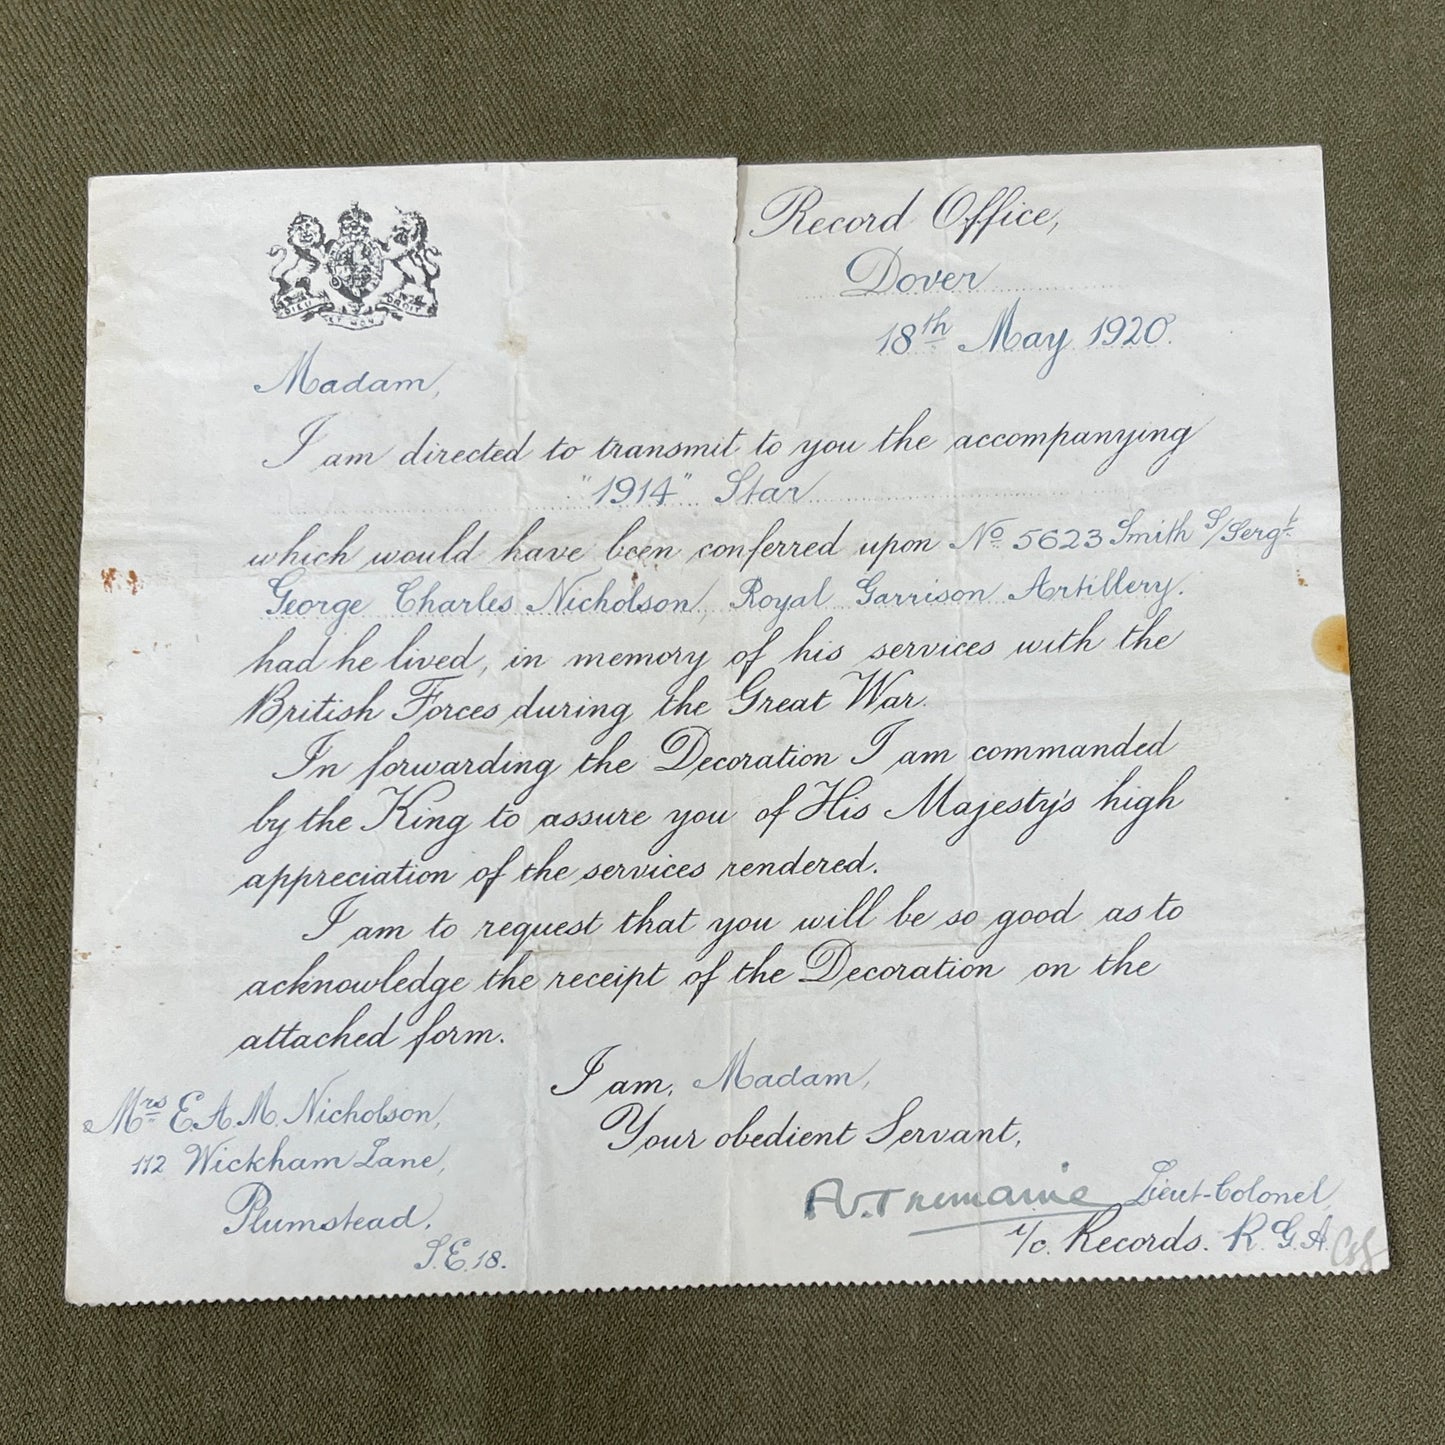 DIEU ET MON DROIT
Record Office,
Dover
18th May 1920.
Madam,
I am directed to transmit to you the accompanying
"1914" Star
which would have been conferred upon No 5623 Smith S/Sergt
George Charles Nicholson, Royal Garrison Artillery.
had he lived, in memory of his services with the
British Forces during the Great War.
In forwarding the Decoration I am commanded
by the King to assure you of His Majesty's high
appreciation of the services rendered.
I am to request that you will be so good as to
acknowledge the receipt of the Decoration on the
attached form.
I am, Madam,
Your obedient Servant,
Tremaine Lieut-Colonel,
i/c. Records. R.G.A.
Mrs E.A.M. Nicholson,
112 Wickham Lane,
Plumstead.
S.E.18.